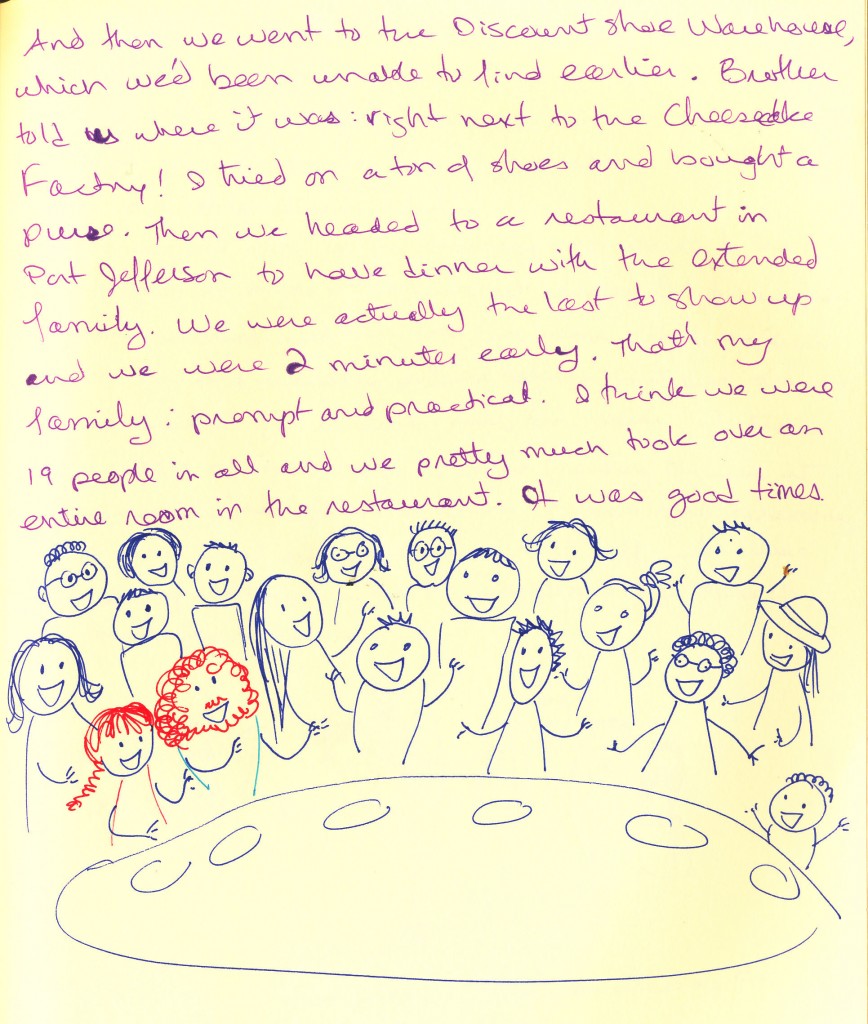 And then we went to the Discount Shoe Warehouse,
which we'd been unable to find earlier. Brother
told us where it was: right next to the Cheesecake
Factory! I tried on a ton of shoes and bought a
purse. Then we headed to a restaurant in
Port Jefferson to have dinner with the extended
family. We were actually the last to show up
and we were 2 minutes early. That's my
family: prompt and practical. I think we were
19 people in all and we pretty much took over an
entire room in the restaurant. It was good times.